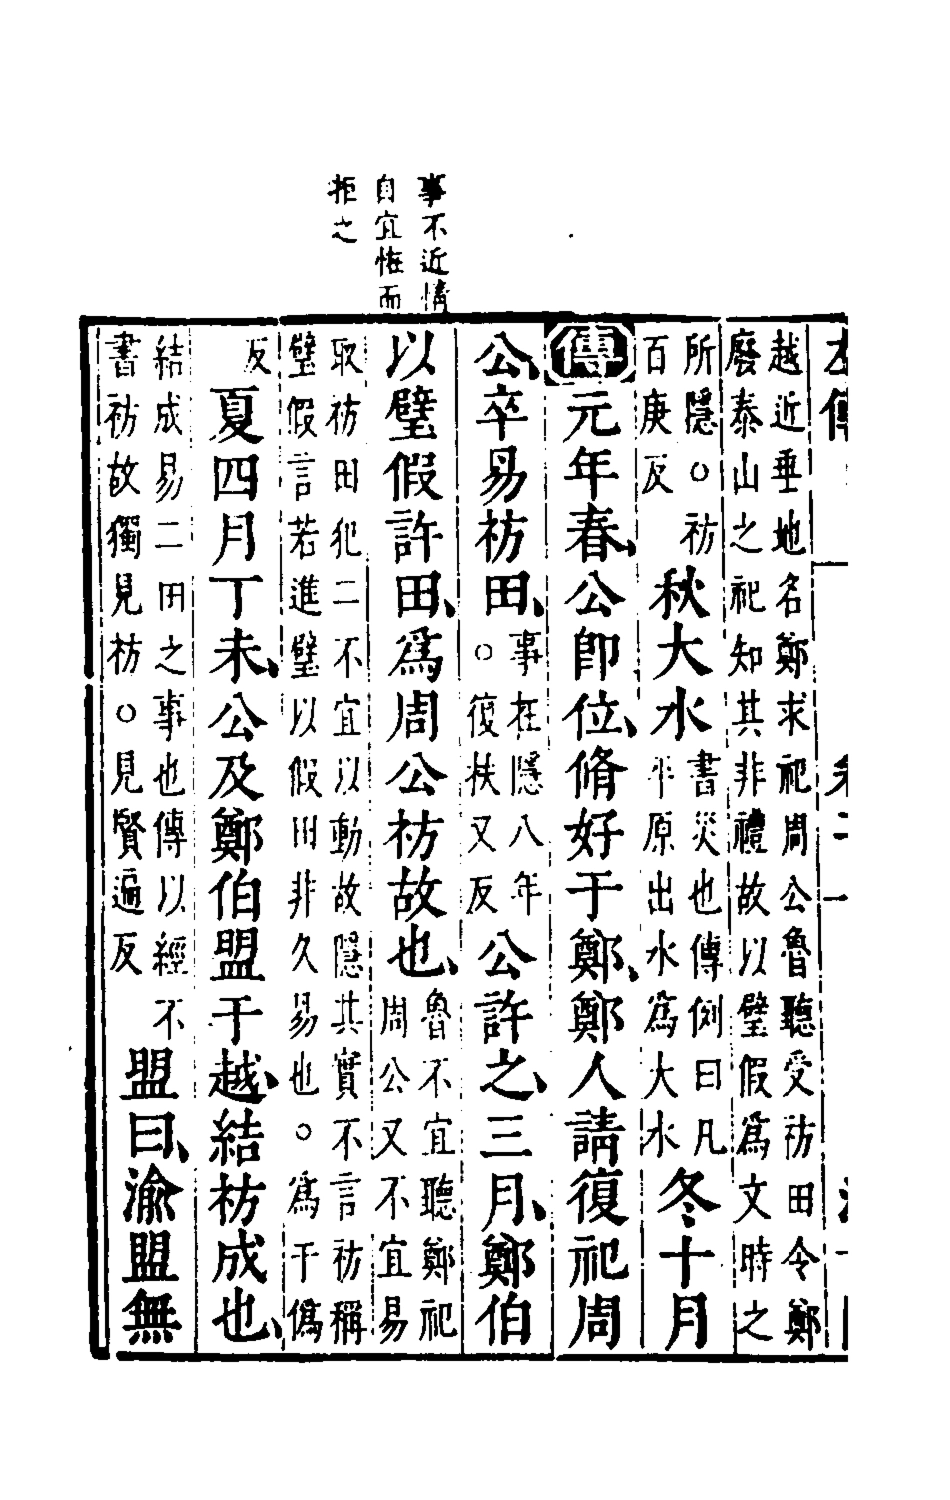 事不近情
自宜恠而
拒之
左傳
越近垂地名鄭求祀周公魯聽受祊田令鄭
廢泰山之祀知其非禮故以璧假為文時之
所隱○祊
百庚反
秋大水
書災也傳例曰凡
平原出水為大水
冬十月
傳元年春、公即位、脩好于鄭、鄭人請復祀周
公、卒易祊田、
事在隱八年
○復扶又反
公許之、三月、鄭伯
以璧假許田、為周公祊故也、
魯不宜聽鄭祀
周公又不宜易
取祊田犯二不宜以動故隱其實不言祊稱
璧假言若進璧以假田非久易也○為于偽
反
夏四月丁未、公及鄭伯盟于越、結祊成也、
結成易二田之事也傳以經不
書祊故獨見祊○見賢遍反
盟曰、渝盟無